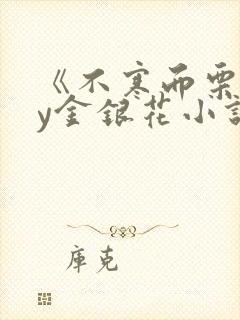 《不寒而栗
y金银花小說
库克